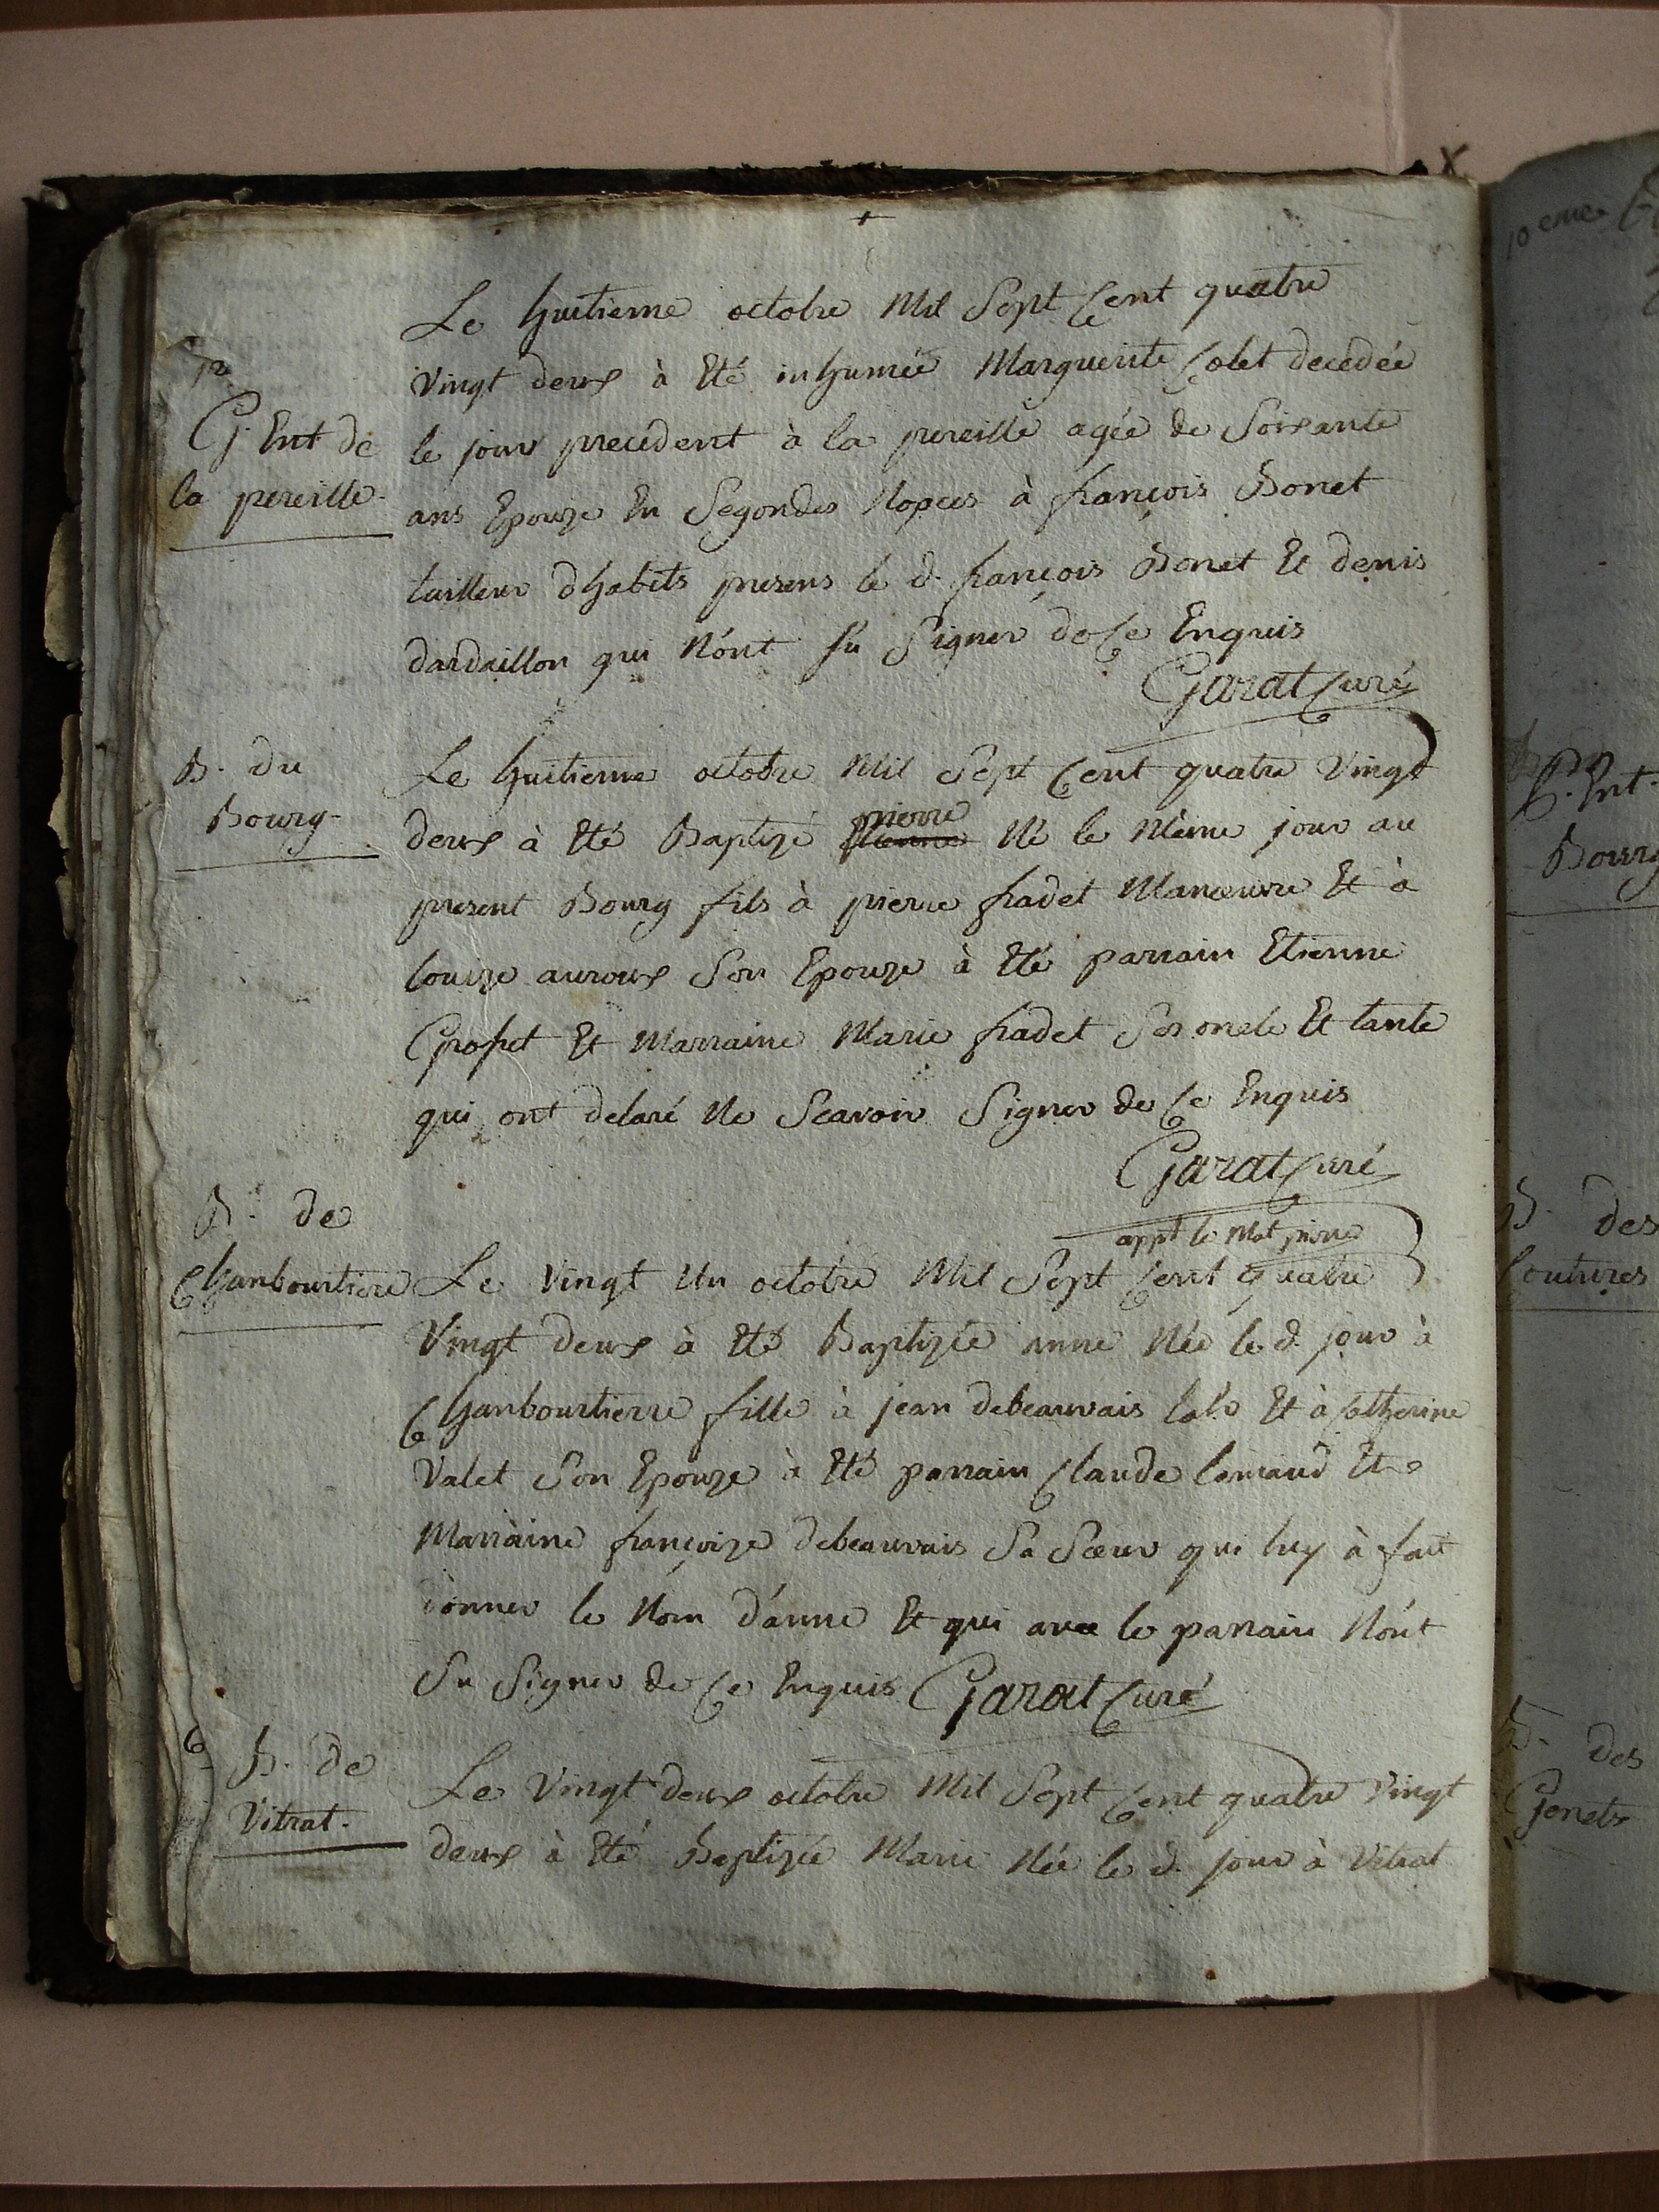 Le huitieme octobre Mil Sept Cent quatre
vingt deux à Eté inhumée Marguerite Colet decedée
G. Ent de
la pereille
le jour precedent à la pereille agée de Soixante
ans Epouze En Segondes Nopces à françois Bonet
tailleur dhabits presens le d. françois Bonet Et denis
dardaillon qui N'ont Su Signer de Ce Enquis
Garat Curé
B. du
Bourg
Le huitieme octobre Mil Sept Cent quatre Vingt
pierre
deux à Eté Baptizé Né le Même jour au
present Bourg fils à pierre fradet Manoeuvre Et à
Louize auroux Son Epouze à Eté parrain Etienne
Et Marraine Marie fradet Ses oncle Et tante
qui ont delaré Ne Scavoir Signer de Ce Enquis
Garat Curé
app. le Mot pierre
B. de
Chambourtiere
Le Vingt Un octobre Mil Sept Cent quatre
Vingt deux à Eté Baptizée anne Née le d. jour à
Chambourtierre fille à jean debeauvais Et à Catherine
Valet Son Epouze à Eté parrain Claude Et
Marraine françoize debeauvais Sa Sœur qui luy à fait
donner le Nom d'anne Et qui avec le parrain N'ont
Su Signer de Ce Enquis Garat Curé
B. de
Vitrat.
Le Vingt deux octobre Mil Sept Cent quatre Vingt
deux à Eté Baptizée Marie Née le d. jour à Vitrat
10eme
Ent.
Bourg
B. des
Coutures
B. des
Genets